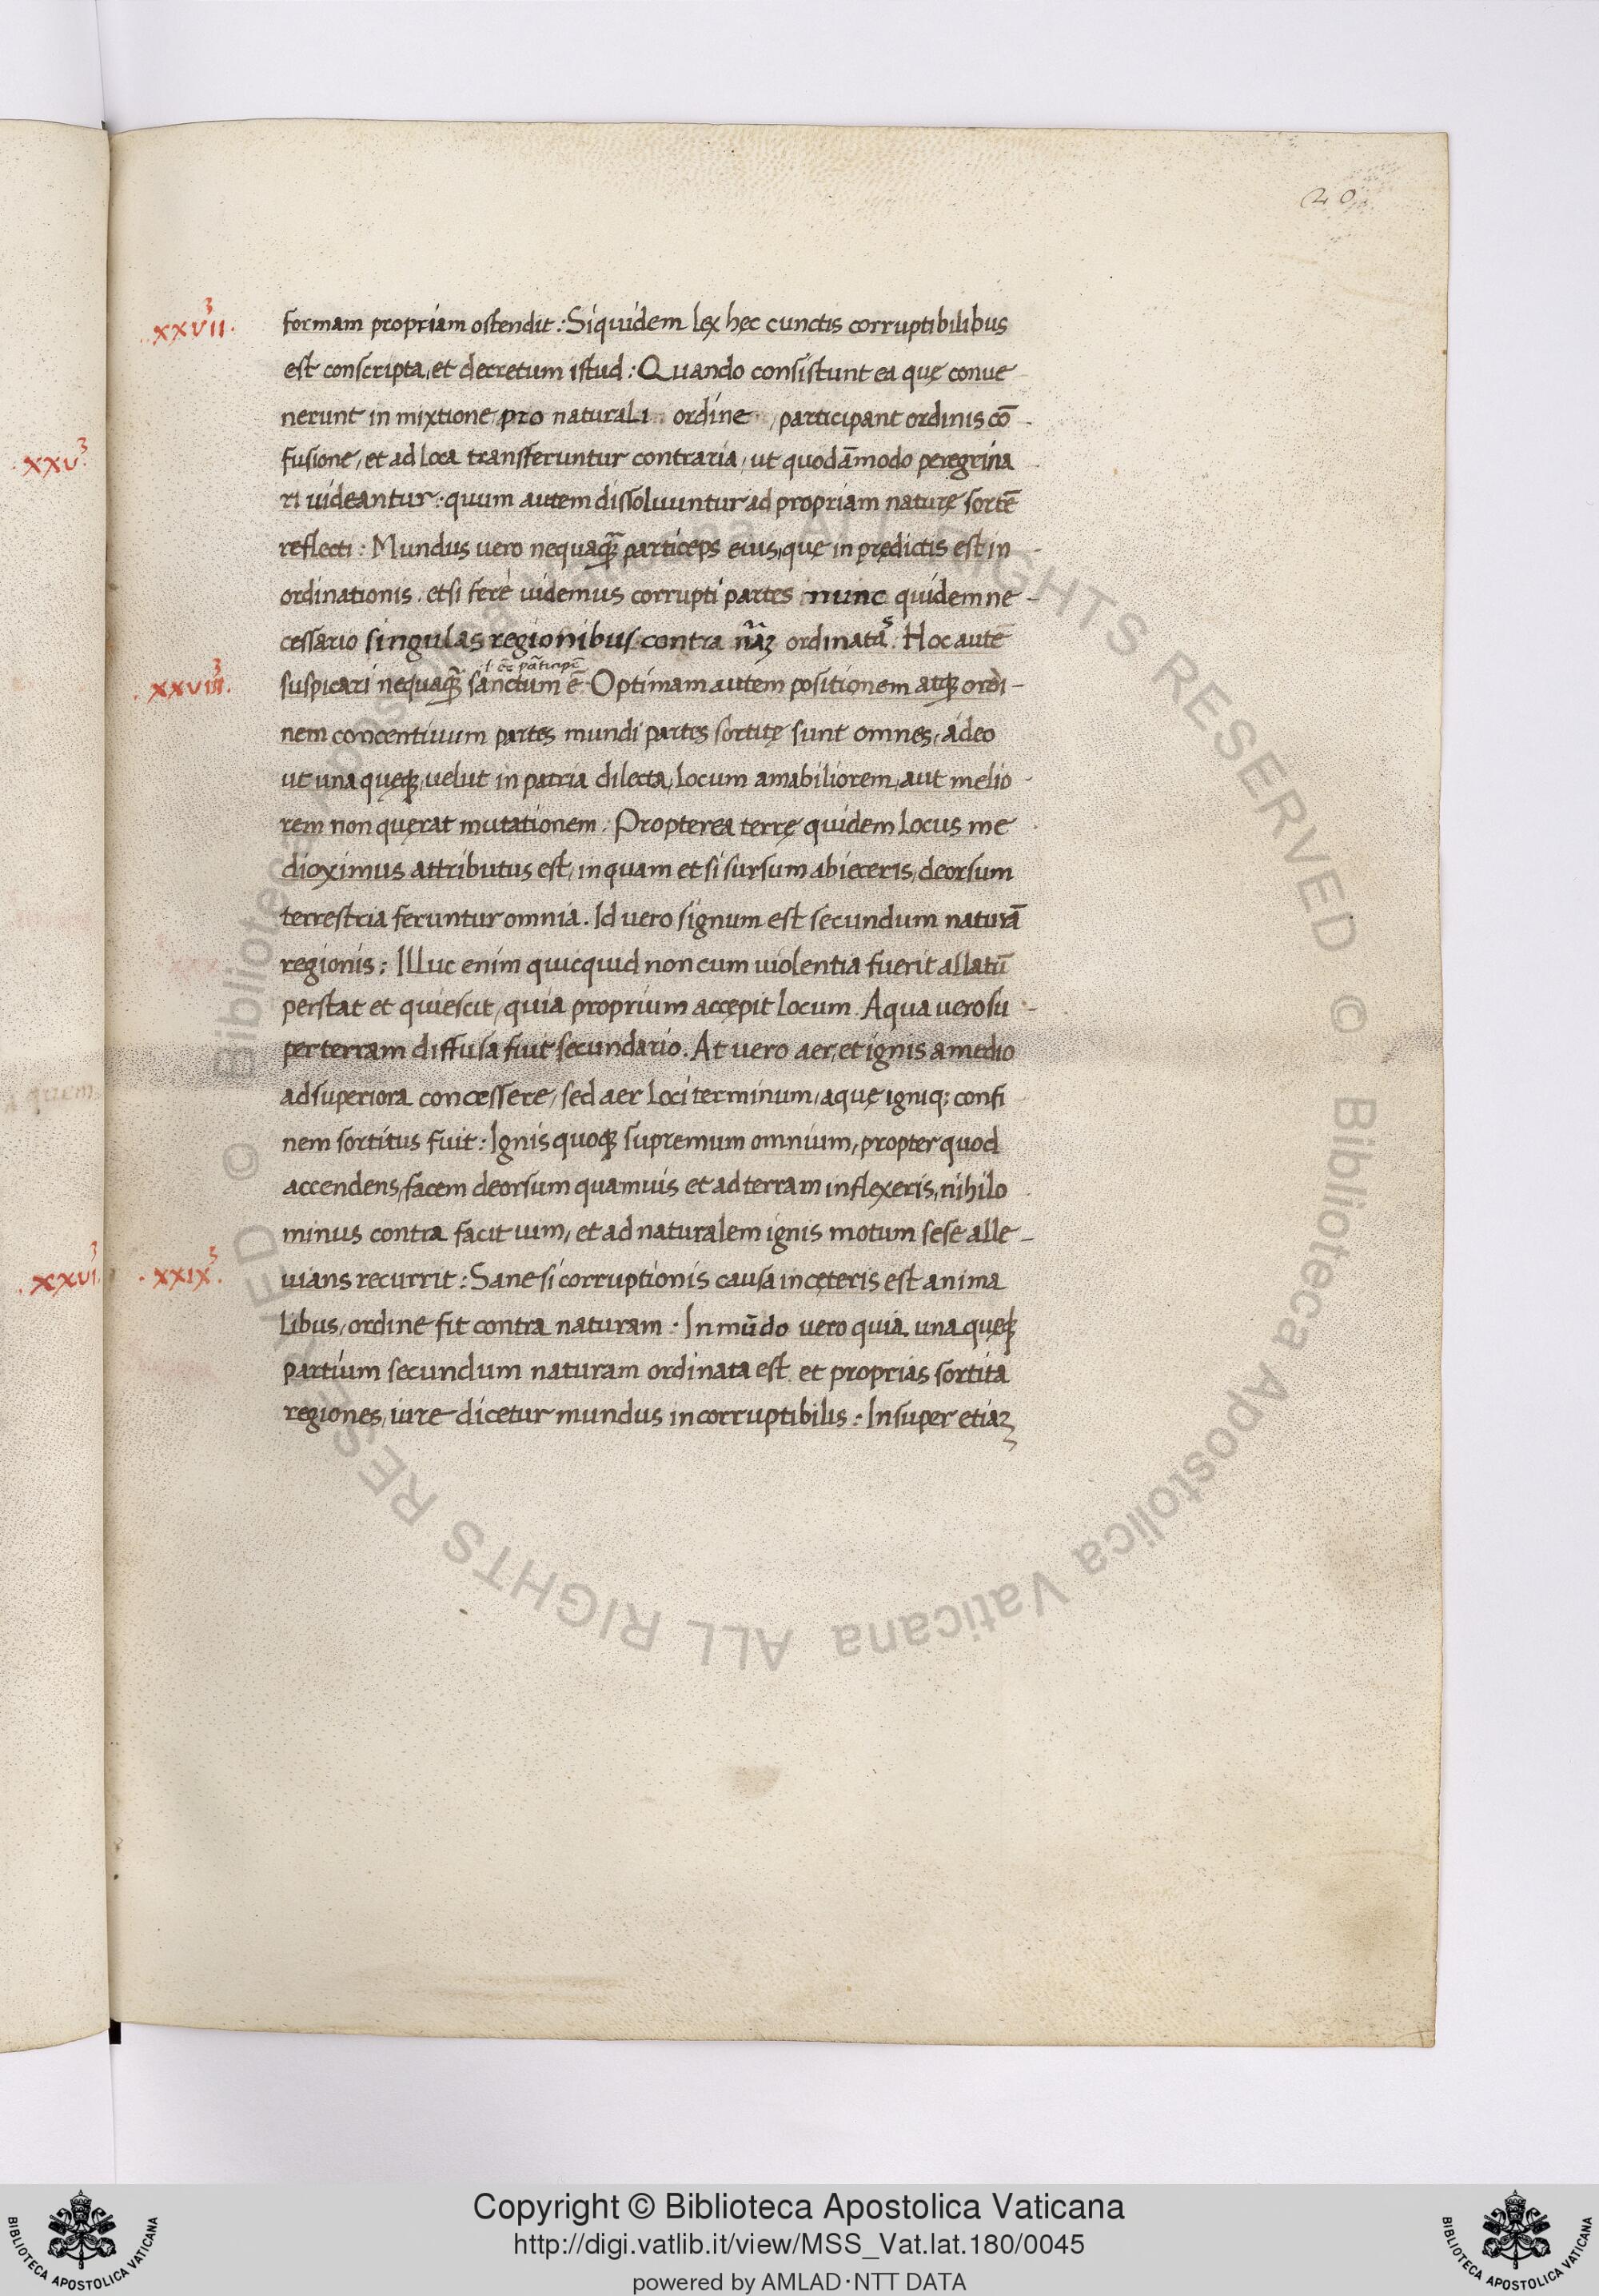 20
xxvii.
formam propriam ostendit: Siquidem lex hęc cunctis corruptibilibus
est conscripta, et decretum istud: Quando consistunt ea quę conue
nerunt in mixtione pro naturali ordine, participant ordinis cō-
fusione, et ad loca transferuntur contraria, ut quodāmodo peregrina
ri uideantur: quum autem dissoluuntur ad propriam naturę sortē
reflecti: Mundus uero nequaq̄ particeps eius, quę in prędictis est in-
ordinationis. etsi ferè uidemus corrupti partes nunc quidem ne-
cessario singulas regionibus contra nãꝫ ordinatas. Hoc autē
xxviii.
suspicari nequaq̄ sanctum ē. Optimam autem positionem atqꝫ ordi-
nem concentiuum partes mundi partes sortitę sunt omnes, adeo
ut una quęqꝫ, uelut in patria dilecta, locum amabiliorem, aut melio-
rem non quęrat mutationem. Propterea terrę quidem locus me
dioximus attributus est, in quam et si sursum abieceris, deorsum
terrestria feruntur omnia. Id uero signum est secundum naturā
regionis: Illuc enim quicquid non cum uiolentia fuerit allatū
perstat et quiescit, quia proprium accepit locum. Aqua uero su-
per terram diffusa fuit secundario. At uero aer, et ignis a medio
ad superiora concessere, sed aer loci terminum, aquę igniq; confi
nem sortitus fuit: Ignis quoqꝫ supremum omnium, propter quod
accendens, facem deorsum quamuis et ad terram inflexeris, nihilo
minus contra facit uim, et ad naturalem ignis motum sese alle-
xxix.
uians recurrit: Sane si corruptionis causa in cęteris est anima
libus, ordine fit contra naturam. In mūdo uero quia una quęqꝫ
partium secundum naturam ordinata est et proprias sortita
regiones, iure dicetur mundus incorruptibilis: Insuper etiaꝫ
xxv.
xxvi.
© Biblioteca Apostolica Vaticana ALL RIGHTS RESERVED © Biblioteca Apostolica Vaticana ALL RIGHTS RESERVED
Copyright © Biblioteca Apostolica Vaticana
http://digi.vatlib.it/view/MSS_Vat.lat.180/0045
powered by AMLAD·NTT DATA
BIBLIOTECA APOSTOLICA VATICANA
BIBLIOTECA APOSTOLICA VATICANA